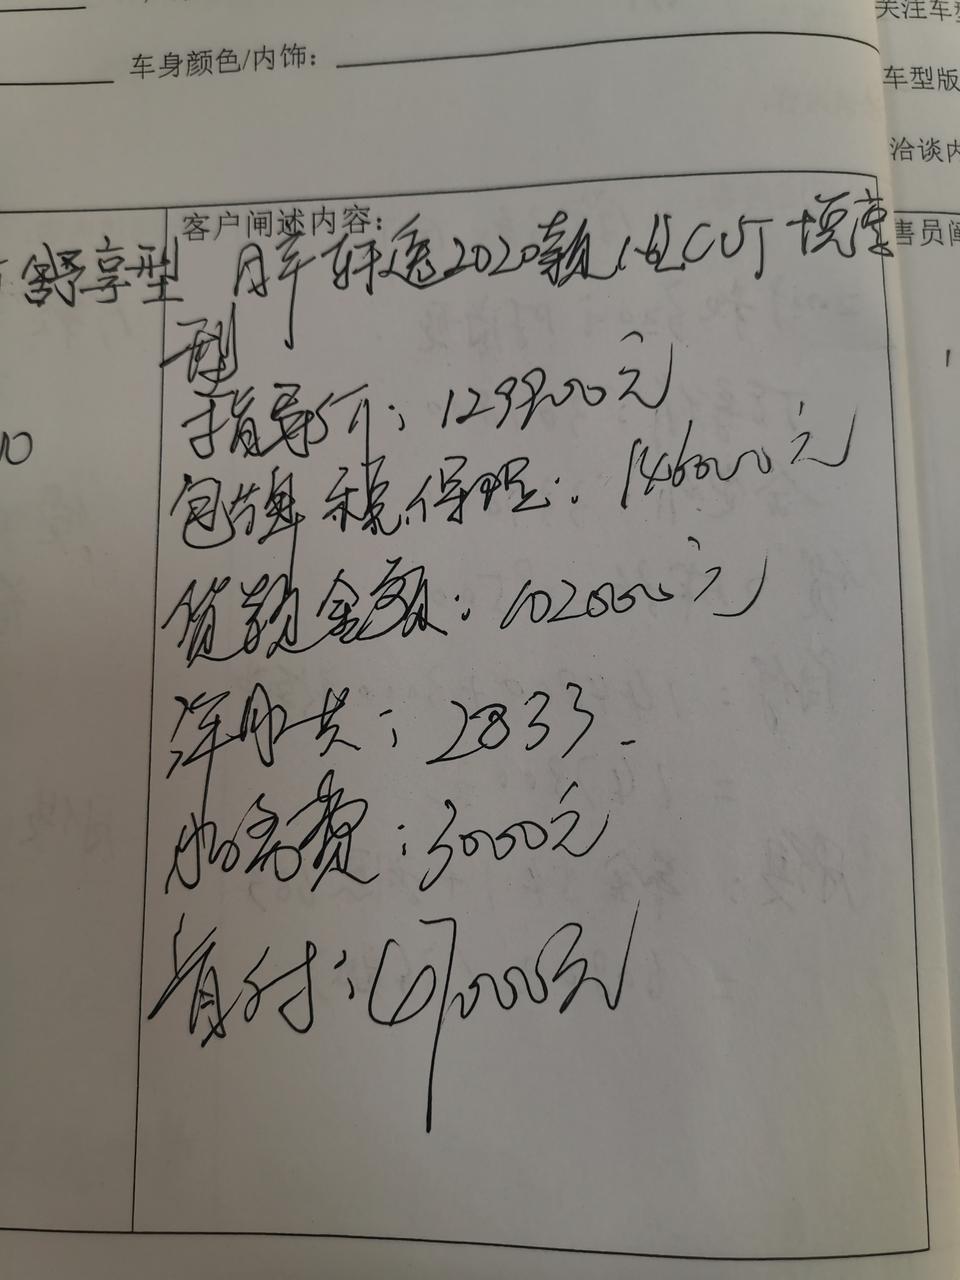 关注车型
车身颜色/内饰:
车型版
洽谈内
客户阐述内容:
售员阐
舒享型
轩逸2020款1.6L CVT
型
指导价: 129900元
包牌 税.保险: 146000元
贷款金额: 102000元
: 2833
费: 3000元
首付: 67000元